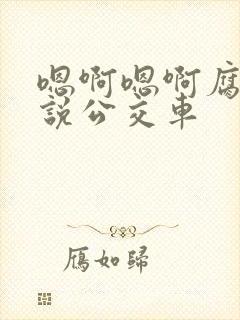 嗯啊嗯啊腐
說公交車
鴈如歸